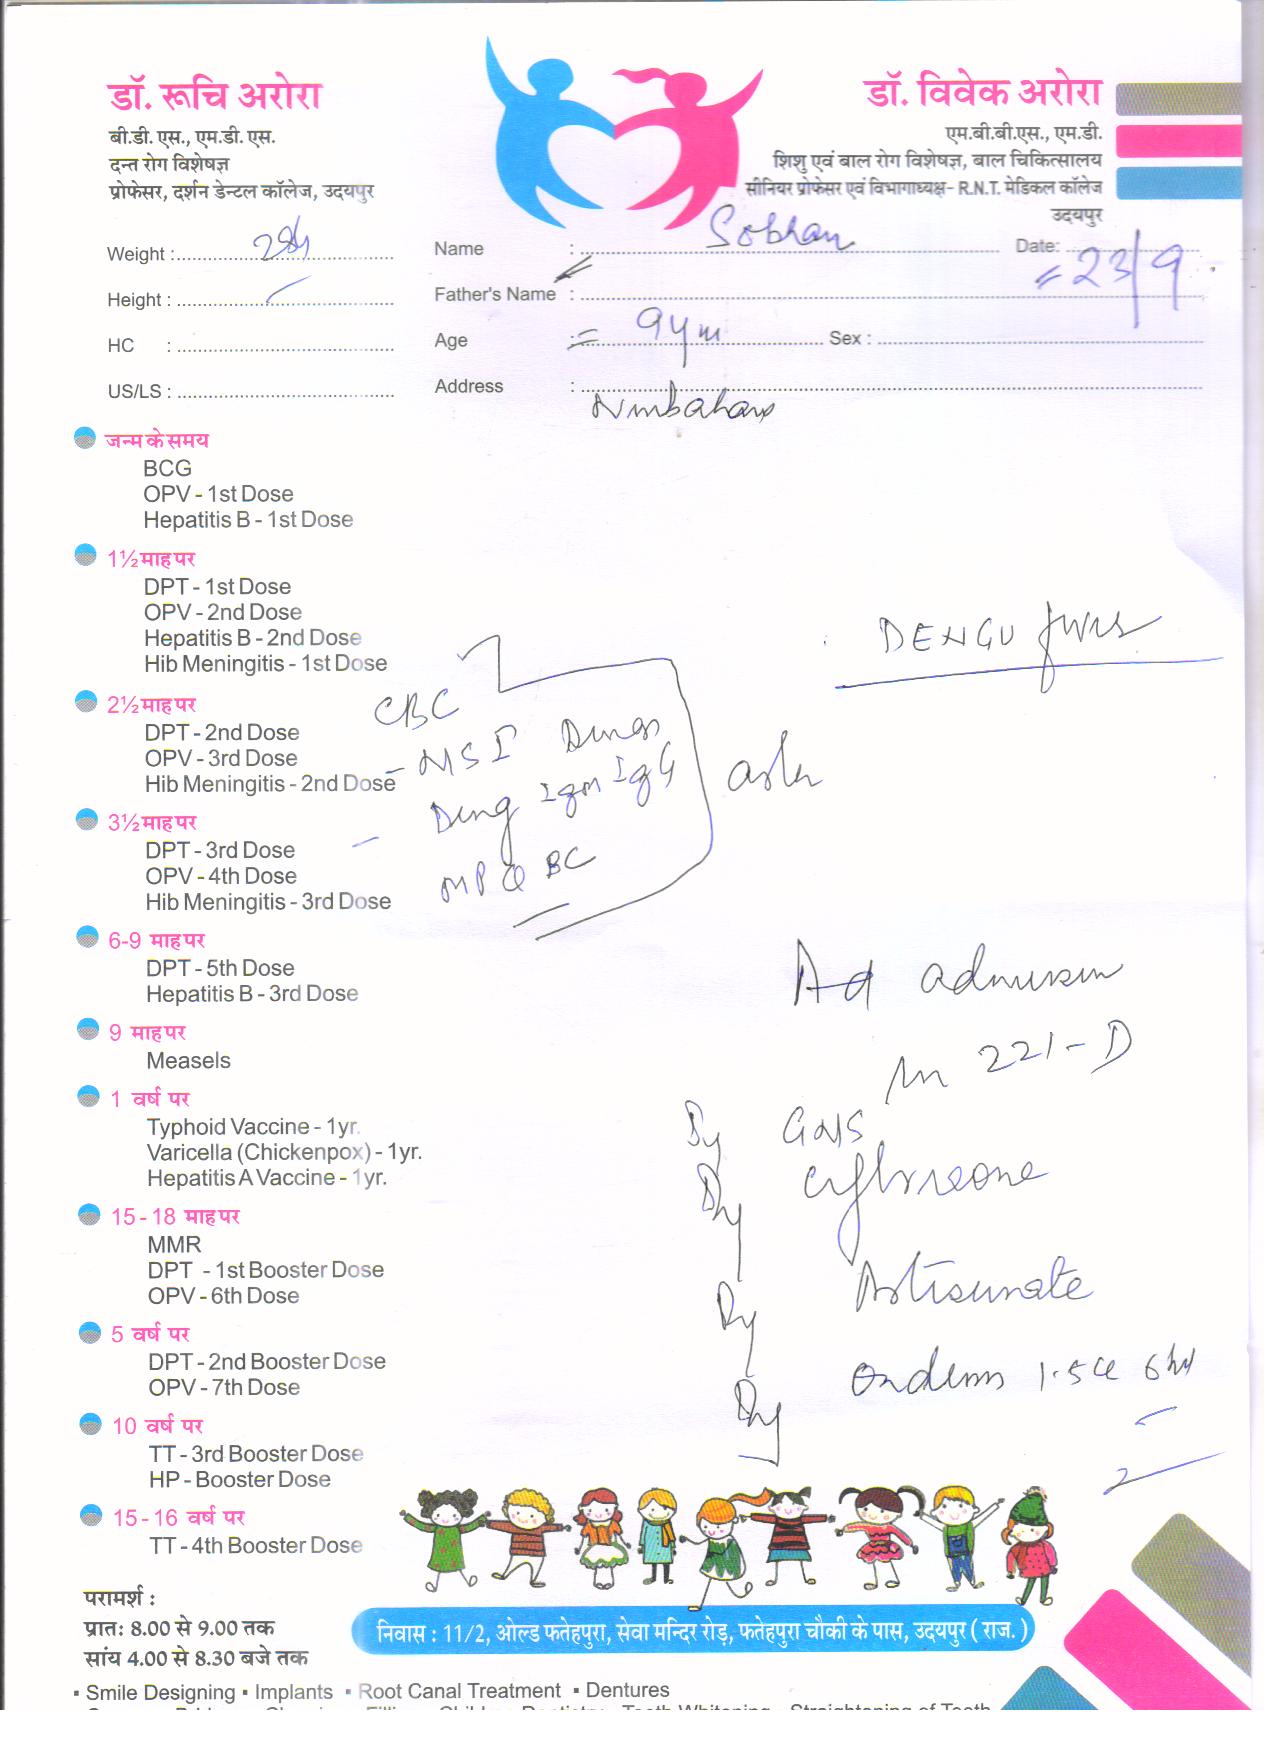 डॉ. रूचि अरोरा
बी.डी. एस., एम.डी. एस.
दन्त रोग विशेषज्ञ
प्रोफेसर, दर्शन डेन्टल कॉलेज, उदयपुर
डॉ. विवेक अरोरा
एम.बी.बी.एस., एम.डी.
शिशु एवं बाल रोग विशेषज्ञ, बाल चिकित्सालय
सीनियर प्रोफेसर एवं विभागाध्यक्ष- R.N.T. मेडिकल कॉलेज
उदयपुर
Weight :
Name : Sobhan Date: 23/9
Height :
Father's Name :
HC :
Age : 9 Sex :
US/LS :
Address :
जन्म के समय
BCG
OPV - 1st Dose
Hepatitis B - 1st Dose
1½ माह पर
DPT - 1st Dose
OPV - 2nd Dose
Hepatitis B - 2nd Dose
Hib Meningitis - 1st Dose
2½ माह पर
DPT - 2nd Dose
OPV - 3rd Dose
Hib Meningitis - 2nd Dose
3½ माह पर
DPT - 3rd Dose
OPV - 4th Dose
Hib Meningitis - 3rd Dose
6-9 माह पर
DPT - 5th Dose
Hepatitis B - 3rd Dose
9 माह पर
Measels
1 वर्ष पर
Typhoid Vaccine - 1yr.
Varicella (Chickenpox) - 1yr.
Hepatitis A Vaccine - 1yr.
15 - 18 माह पर
MMR
DPT - 1st Booster Dose
OPV - 6th Dose
5 वर्ष पर
DPT - 2nd Booster Dose
OPV - 7th Dose
10 वर्ष पर
TT - 3rd Booster Dose
HP - Booster Dose
15 - 16 वर्ष पर
TT - 4th Booster Dose
DENGU
CBC
IgM IgG
MP QBC
Ad admission
in 221-D
GNS
Artisunate
1.5cc 6
परामर्श :
प्रातः 8.00 से 9.00 तक
सांय 4.00 से 8.30 बजे तक
निवास : 11/2, ओल्ड फतेहपुरा, सेवा मन्दिर रोड़, फतेहपुरा चौकी के पास, उदयपुर ( राज. )
▪ Smile Designing ▪ Implants ▪ Root Canal Treatment ▪ Dentures